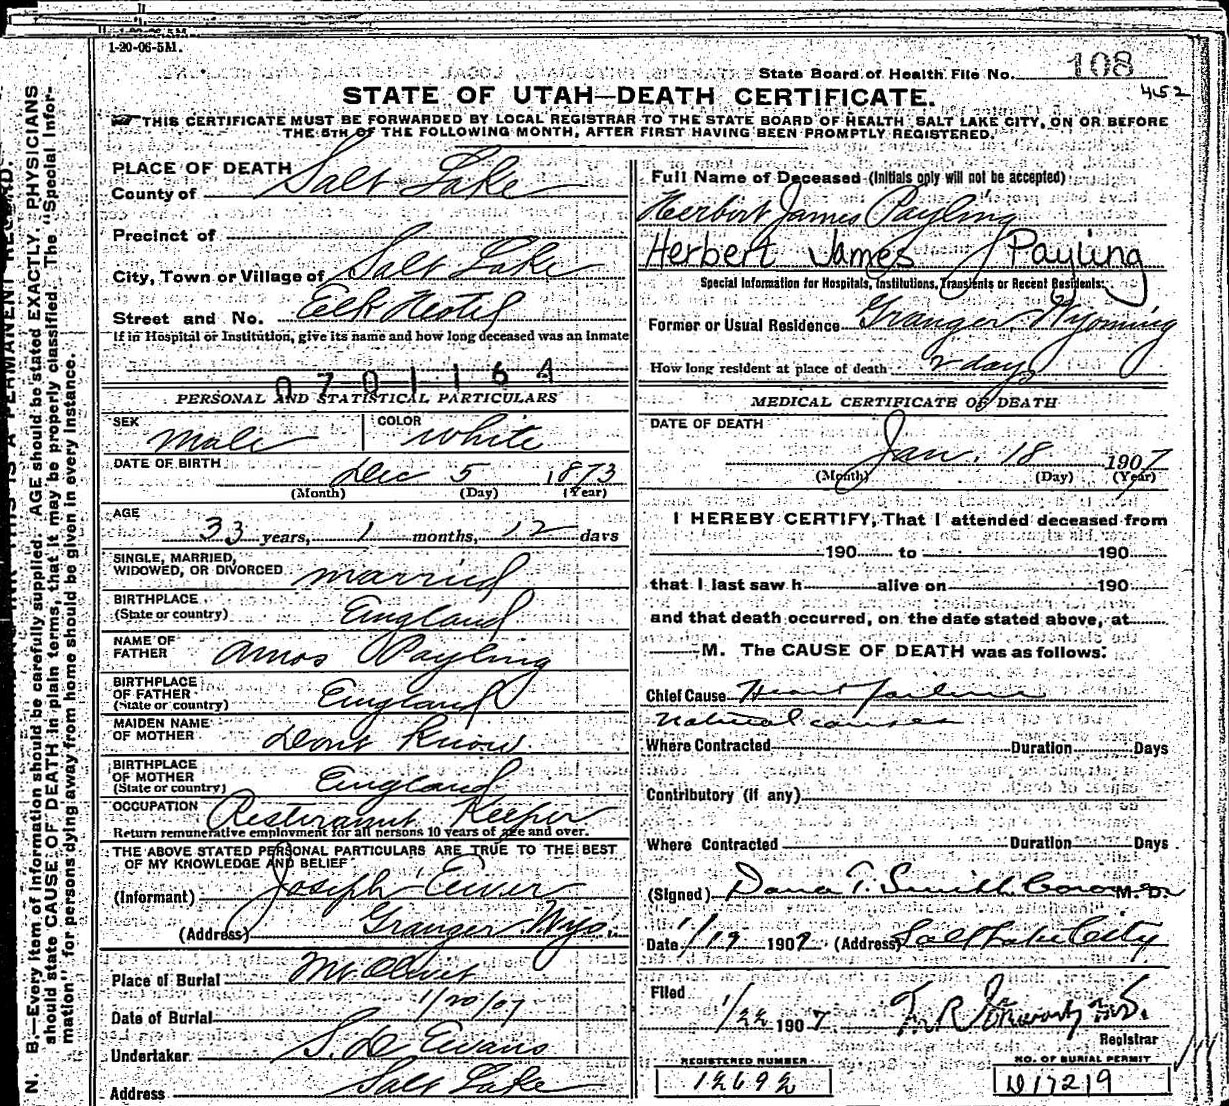 1-20-06-5M.
State Board of Health File No. 108
452
STATE OF UTAH—DEATH CERTIFICATE.
THIS CERTIFICATE MUST BE FORWARDED BY LOCAL REGISTRAR TO THE STATE BOARD OF HEALTH SALT LAKE CITY, ON OR BEFORE
THE 5TH OF THE FOLLOWING MONTH, AFTER FIRST HAVING BEEN PROMPTLY REGISTERED.
PLACE OF DEATH
County of Salt Lake
Precinct of
City, Town or Village of Salt Lake
Street and No. Elk Hotel
If in Hospital or Institution, give its name and how long deceased was an inmate
070116A
PERSONAL AND STATISTICAL PARTICULARS
SEX male COLOR white
DATE OF BIRTH Dec 5 1873
(Month) (Day) (Year)
AGE
33 years, 1 months, 12 days
SINGLE, MARRIED,
WIDOWED, OR DIVORCED married
BIRTHPLACE
(State or country) England
NAME OF
FATHER Amos Payling
BIRTHPLACE
OF FATHER England
(State or country)
MAIDEN NAME
OF MOTHER Dont Know
BIRTHPLACE
OF MOTHER England
(State or country)
OCCUPATION Resteraunt Keeper
Return remunerative employment for all persons 10 years of age and over.
THE ABOVE STATED PERSONAL PARTICULARS ARE TRUE TO THE BEST
OF MY KNOWLEDGE AND BELIEF
(Informant) Joseph
(Address) Granger Wyo.
Place of Burial Mt. Olivet
Date of Burial 1/20/07
Undertaker S. D. Evans
Address Salt Lake
Full Name of Deceased (Initials only will not be accepted)
Herbert James Payling
Herbert James Payling
Special Information for Hospitals, Institutions, Transients or Recent Residents:
Former or Usual Residence Granger, Wyoming
How long resident at place of death 2 days
MEDICAL CERTIFICATE OF DEATH
DATE OF DEATH
Jan. 18 1907
(Month) (Day) (Year)
I HEREBY CERTIFY, That I attended deceased from
190 to 190
that I last saw h alive on 190
and that death occurred, on the date stated above, at
M. The CAUSE OF DEATH was as follows:
Chief Cause Heart failure
Natural causes
Where Contracted Duration Days
Contributory (if any)
Where Contracted Duration Days
(Signed) Dana T. Smith Coroner M. D.
Date 1/19 1907 (Address) Salt Lake City
Filed
1/22 1907
Registrar
REGISTERED NUMBER
12692
NO. OF BURIAL PERMIT
D17219
N. B.—Every item of information should be carefully supplied. AGE should be stated EXACTLY. PHYSICIANS
should state CAUSE OF DEATH in plain terms, that it may be properly classified. The "Special Infor-
mation" for persons dying away from home should be given in every instance.
THIS IS A PERMANENT RECORD.